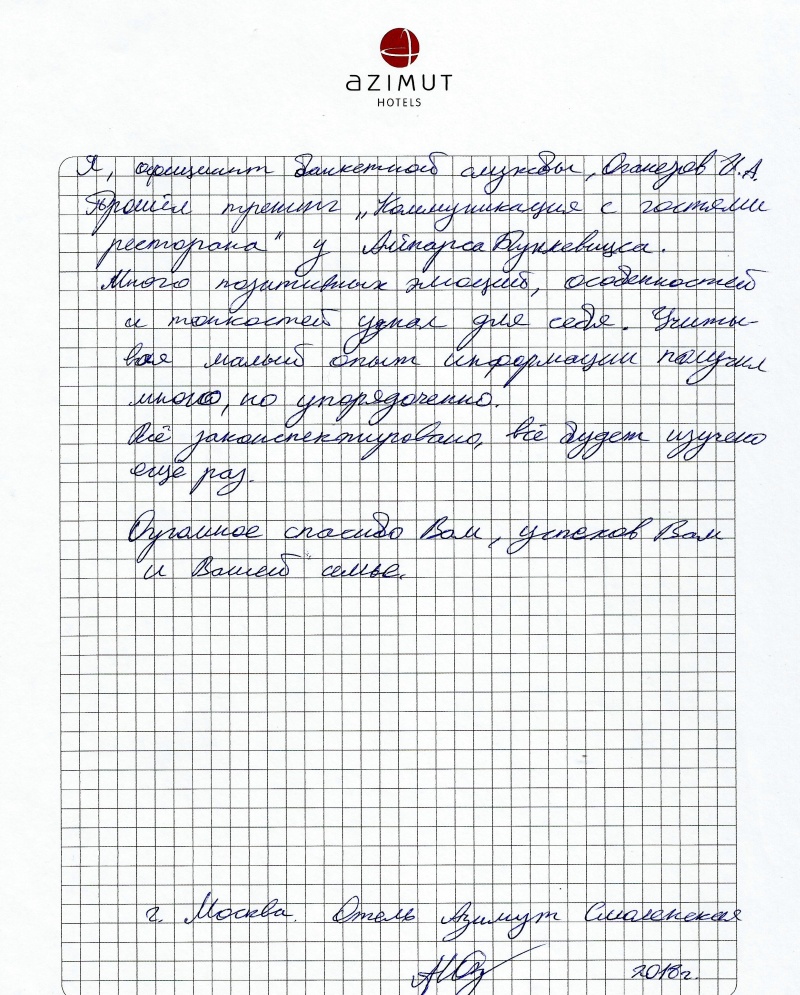 AZIMUT
HOTELS
Я, официант банкетной службы, Оганезов И.А.
Прошёл тренинг „Коммуникация с гостями
ресторана“ у Айнарса Бункевицса.
Много позитивных эмоций, особенностей
и тонкостей узнал для себя. Учиты-
вая малый опыт информации получил
много, но упорядоченно.
Всё законспектировано, всё будет изучено
ещё раз.
Огромное спасибо Вам, успехов Вам
и Вашей семье.
г. Москва. Отель Азимут Смоленская
2018г.